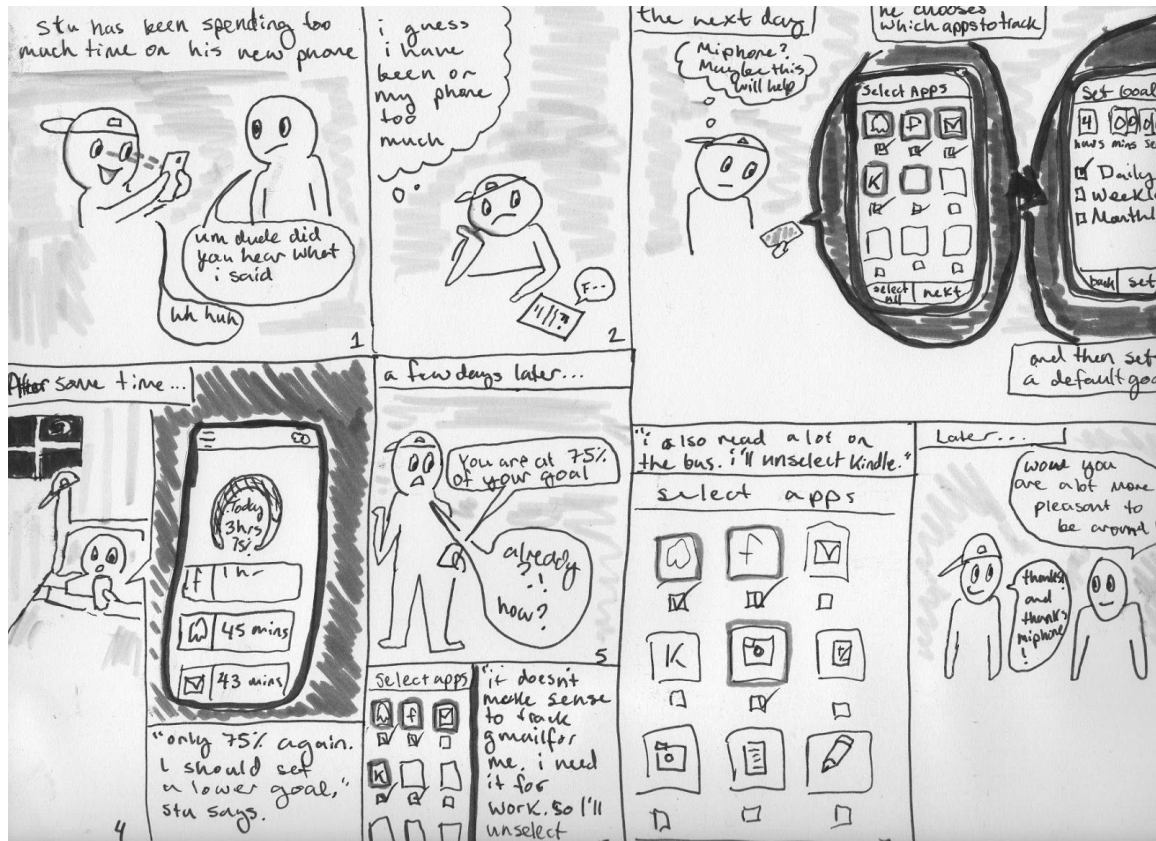 stu has been spending too
much time on his new phone
um dude did
you hear what
i said
uh huh
1
i guess
i have
been on
my phone
too
much
F--
2
the next day
Miphone?
Maybe this
will help
he chooses
which apps to track
Select Apps
f
K
select
all
next
Set Goal
4 00
hours mins se
Daily
Weekl
Monthl
back
set
and then set
a default goa
After some time...
Today
3hrs
75%
f 1 hr
45 mins
43 mins
"only 75% again.
I should set
a lower goal,"
stu says.
4
a few days later...
You are at 75%
of your goal
already
?!
how?
5
Select apps
f
K
"it doesn't
make sense
to track
gmail for
me. i need
it for
work. so I'll
unselect
"i also read a lot on
the bus. i'll unselect Kindle."
select apps
f
K
Later...
wow you
are a lot more
pleasant to
be around
thanks!
and
thanks
miphone
!